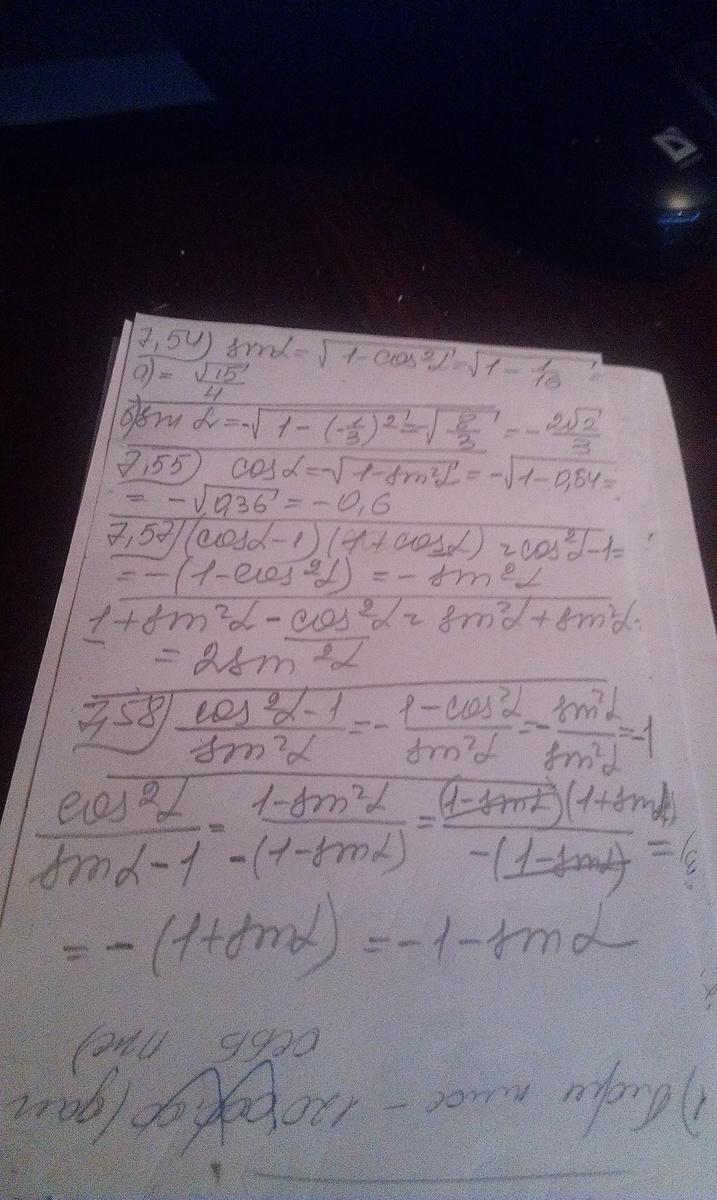 7,54) sinα = √1-cos²α = √1 - 1/16 =
а) = √15/4
б) sin α = -√1 - (-1/3)² = -√8/3 = - 2√2/3
7,55) cosα = -√1-sin²α = -√1-0,64 =
= -√0,36 = -0,6
7,57) (cosα-1)(1+cosα) = cos²α-1=
= -(1-cos²α) = - sin²α
1+sin²α - cos²α = sin²α + sin²α =
= 2sin²α
7,58) cos²α-1/sin²α = - 1-cos²α/sin²α = - sin²α/sin²α = -1
cos²α/sinα-1 = 1-sin²α/-(1-sinα) = (1-sinα)(1+sinα)/-(1-sinα) =
= -(1+sinα) = -1-sinα